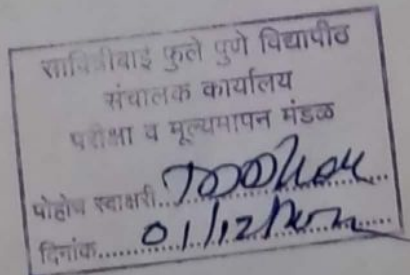 सावित्रीबाई फुले पुणे विद्यापीठ
संचालक कार्यालय
परीक्षा व मूल्यमापन मंडळ
पोहोच स्वाक्षरी
दिनांक 01/12/